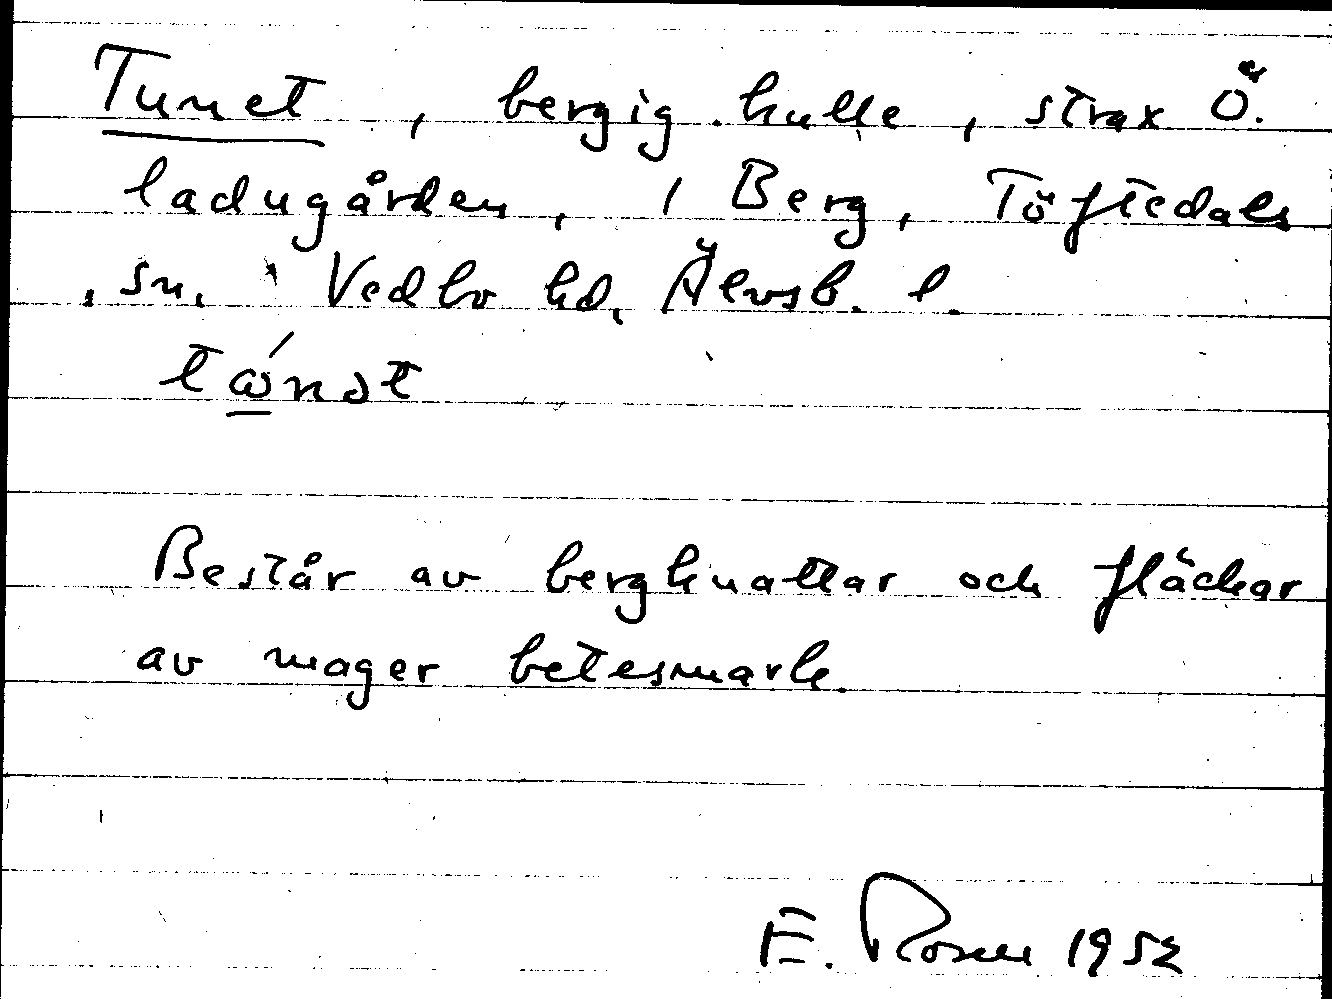 Tunet, bergig kulle, strax Ö.
ladugården, i Berg, Töftedals
sn. Vedbo hd, Älvsb. l.
tǿnət
Består av bergknattar och fläckar
av mager betesmark.
E. Rosell 1952